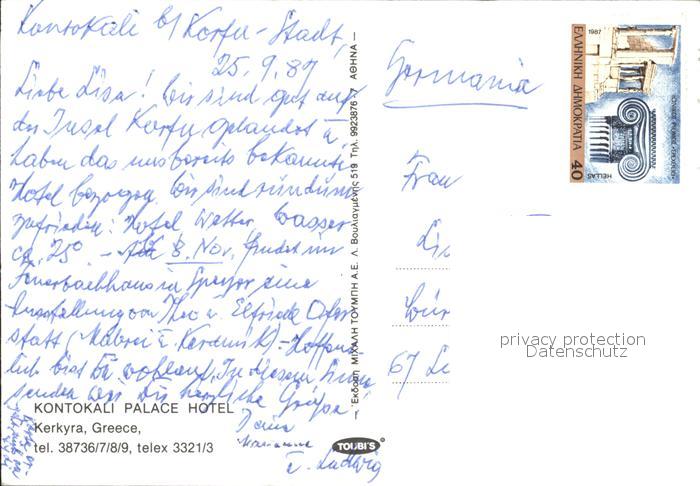 Kontokali b/ Korfu-Stadt,
25.9.87
Liebe Lisa! Wir sind gut auf
der Insel Korfu gelandet u.
haben das uns bereits bekannte
Hotel bezogen. Wir sind rundum
zufrieden: Hotel, Wetter, Wasser
ca. 25°. – 8. Nov. findet im
Feuerbachhaus in Speyer eine
Ausstellung von Theo u. Elfriede
statt (Malerei u. Keramik) – Hoffent-
lich bist Du wohlauf. In diesem Sinne
senden wir Dir herzliche Grüße
Deine
Marianne
u. Ludwig
KONTOKALI PALACE HOTEL
Kerkyra, Greece,
tel. 38736/7/8/9, telex 3321/3
Έκδοση ΜΙΧΑΛΗ ΤΟΥΜΠΗ Α.Ε. Λ. Βουλιαγμένης 519 Τηλ. 9923876-7 ΑΘΗΝΑ
TOUBI'S
Germania
Frau
67
1987
ΕΛΛΗΝΙΚΗ ΔΗΜΟΚΡΑΤΙΑ
40
HELLAS
privacy protection
Datenschutz